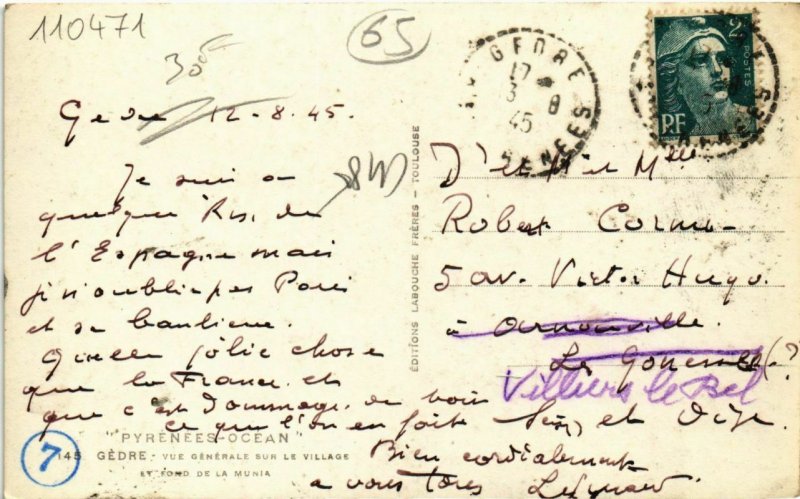 110471
65
GEDRE
17
3 8
45
2F
POSTES
RF
Gedre 12-8-45.
Je suis a
quelque Kms, de
l'Espagne mais
j'n'oublie pas Paris
et sa banlieue.
Quelle jolie chose
que la France et
que c'est dommage de voir
ce que l'on en fait et
Bien cordialement
a vous tous
ÉDITIONS LABOUCHE FRÈRES - TOULOUSE
Mr et Mlle
Robert
5 av. Victor Hugo.
à Arnouville.
Le Gonesse (?)
Villiers le Bel
"PYRÉNÉES-OCÉAN"
7
145 GÈDRE, VUE GÉNÉRALE SUR LE VILLAGE
ET FOND DE LA MUNIA